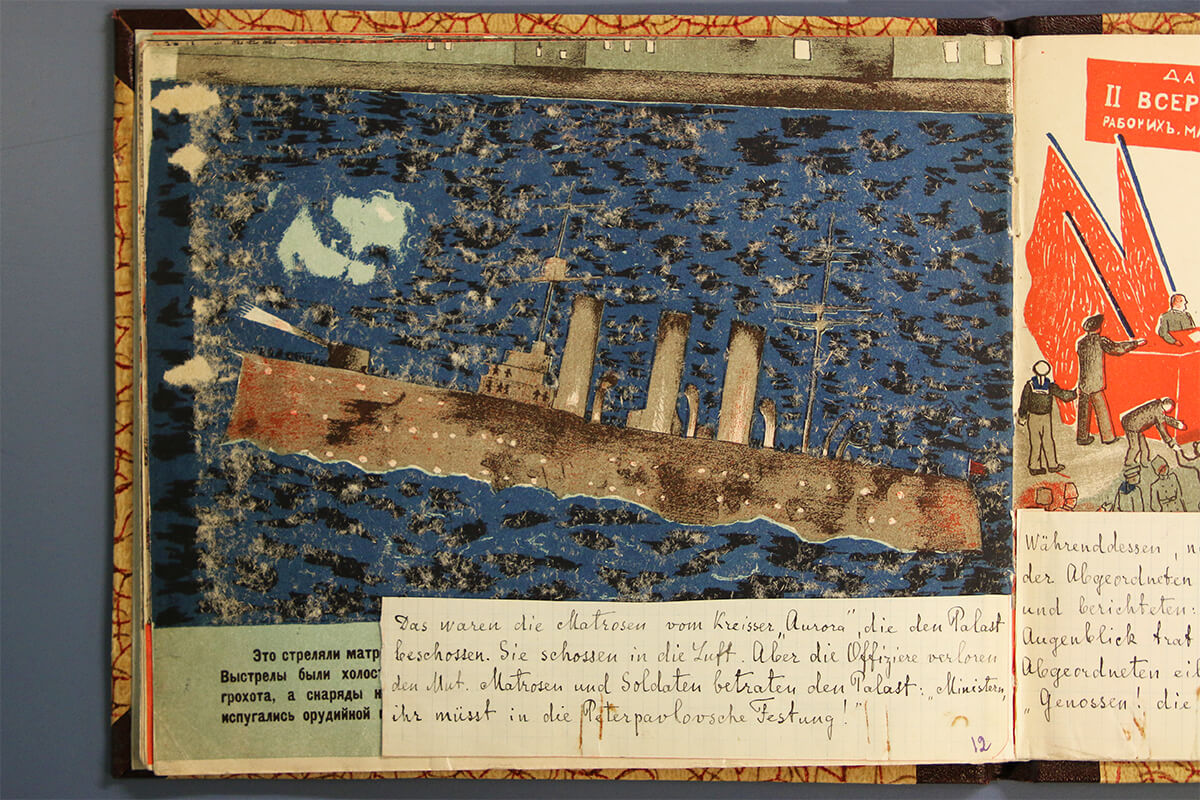 Это стреляли матр
Выстрелы были холост
грохота, а снаряды н
испугались орудийной
Das waren die Matrosen vom Kreisser „Aurora“, die den Palast
beschossen. Sie schossen in die Luft. Aber die Offiziere verloren
den Mut. Matrosen und Soldaten betraten den Palast: „Ministern,
ihr müsst in die Peterpavlovsche Festung!“
12
ДА
II ВСЕР
РАБОЧИХЪ. МА
Währenddessen, n
der Abgeordneten
und berichteten:
Augenblick trat
Abgeordneten ei
„Genossen! die